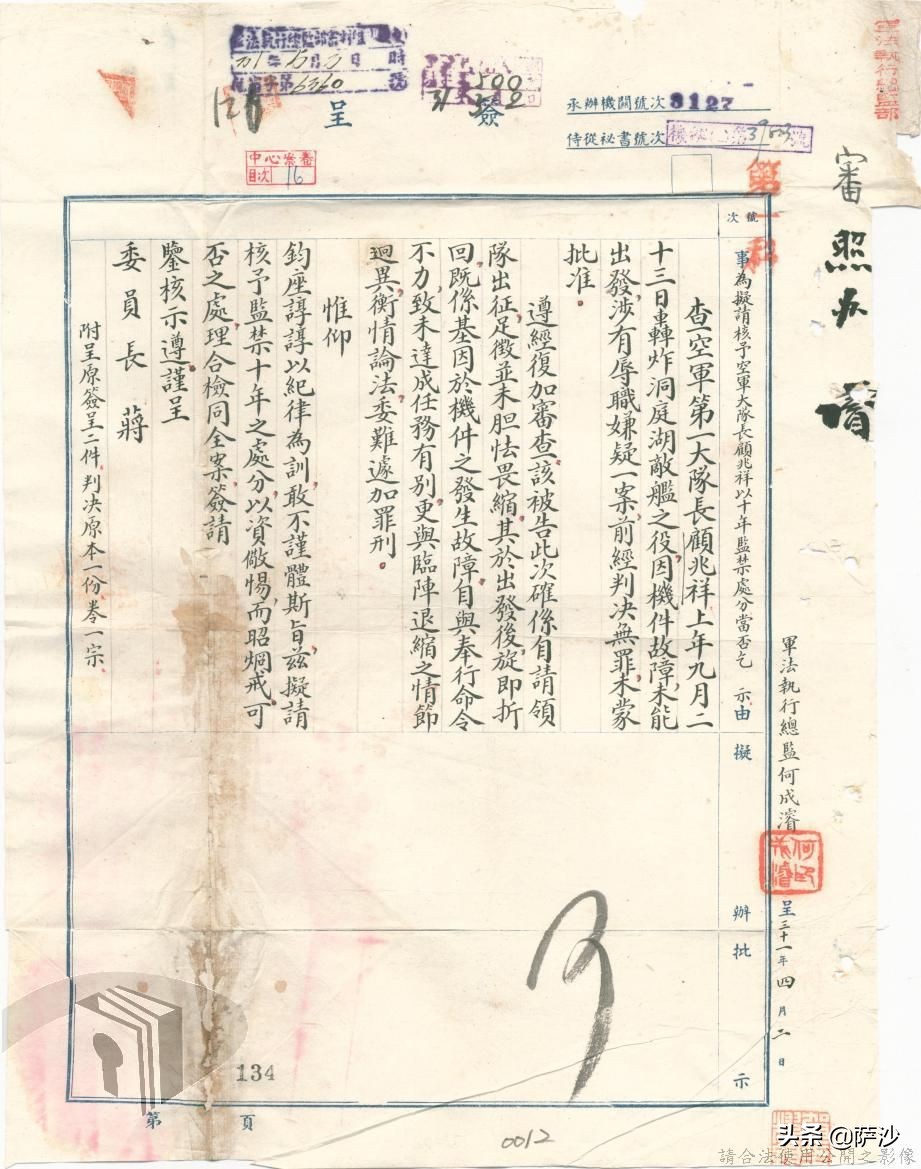 軍法執行總監部
審
照办
承辦機關號次 3127
侍從祕書號次
簽
呈
中心案卷
目次 16
第一科
軍法執行總監何成濬
何成濬印
呈 三十一年四月二日
號次
事由 為擬請核予空軍大隊長顧兆祥以十年監禁處分當否乞 示
擬辦
批示
查空軍第一大隊長顧兆祥上年九月二
十三日轟炸洞庭湖敵艦之役,因機件故障,未能
出發,涉有辱職嫌疑一案,前經判決無罪,未蒙
批准。
遵經復加審查,該被告此次確係自請領
隊出征,足徵並未胆怯畏縮,其於出發後,旋即折
回,既係基因於機件之發生故障,自與奉行命令
不力,致未達成任務有別,更與臨陣退縮之情節
迥異,衡情論法,委難遽加罪刑。
惟仰
鈞座諄諄以紀律為訓,敢不謹體斯旨,茲擬請
核予監禁十年之處分,以資儆惕而昭炯戒,可
否之處,理合檢同全案,簽請
鑒核示遵。謹呈
委員長 蔣
附呈原簽呈二件,判决原本一份,卷一宗。
可
134
第 頁
0012
头条 @萨沙
請合法使用公開之影像